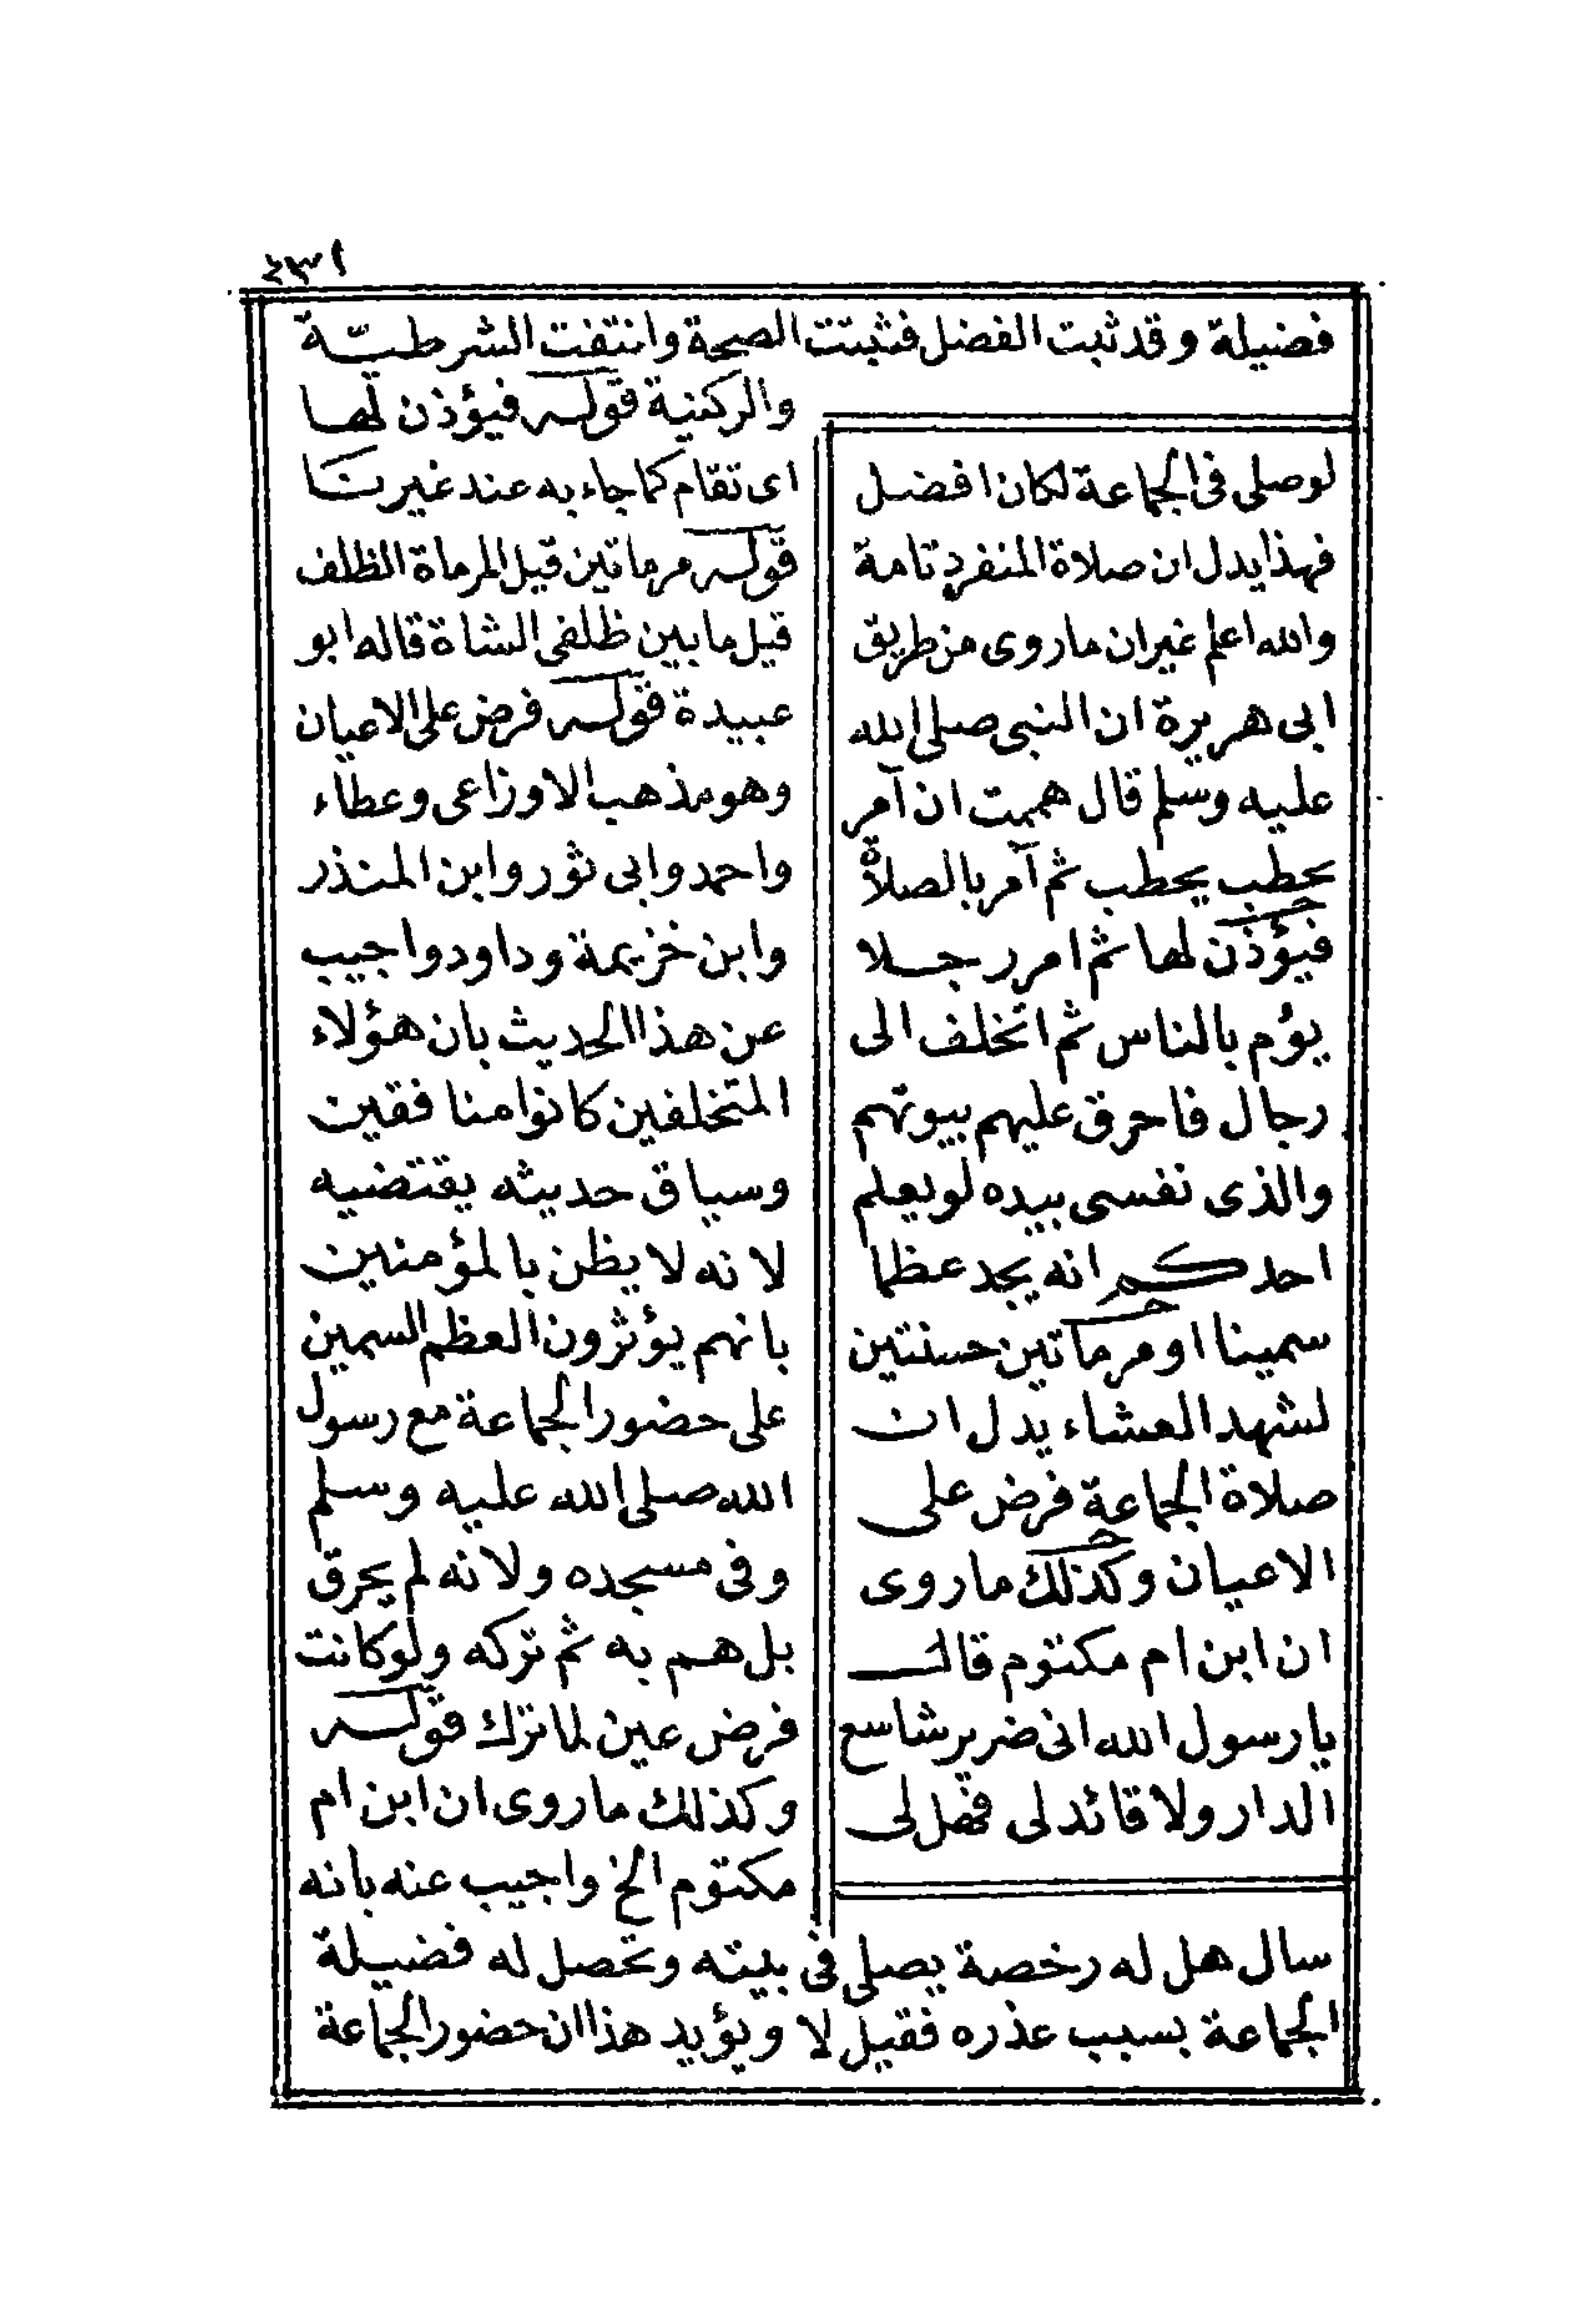 ٤٣١
فضيلة وقد ثبت الفضل فثبتت الصحة وانتفت الشرطيّة
لوصلى فى الجماعة لكان افضل
فهذا يدل ان صلاة المنفرد تامة
والله اعلم غيران ماروى من طريق
ابى هريرة ان النبى صلى الله
عليه وسلم قال هممت ان آمر
بحطب يحطب ثم آمر بالصلاة
فيؤذن لها ثم امر رجلا
يؤم بالناس ثم اتخلف الى
رجال فاحرق عليهم بيوتهم
والذى نفسى بيده لو يعلم
احدكم انه يجد عظما
سمينا او مرماتين حسنتين
لشهد العشاء يدل ان
صلاة الجماعة فرض على
الاعيان وكذلك ماروى
ان ابن ام مكتوم قال
يا رسول الله انى ضرير شاسع
الدار ولا قائد لى فهل لى
والركنية قوله فيؤذن لها
اى تقام كما جاء به عند غيرنا
قوله مرماتين قيل المرماة الظلف
قيل ما بين ظلفى الشاة قاله ابو
عبيدة قوله فرض على الاعيان
وهو مذهب الاوزاعى وعطاء
واحمد وابى ثور وابن المنذر
وابن خزيمة وداود واجيب
عن هذا الحديث بان هؤلاء
المتخلفين كانوا منافقين
وسياق حديثه يقتضيه
لانه لا يظن بالمؤمنين
بانهم يؤثرون العظم السمين
على حضور الجماعة مع رسول
الله صلى الله عليه وسلم
وفى مسجده ولانه لم يحرق
بل هم به ثم تركه ولو كانت
فرض عين لما ترك قوله
وكذلك ماروى ان ابن ام
مكتوم الخ واجيب عنه بانه
سال هل له رخصة يصلى فى بيته وتحصل له فضيلة
الجماعة بسبب عذره فقيل لا ويؤيد هذا ان حضور الجماعة